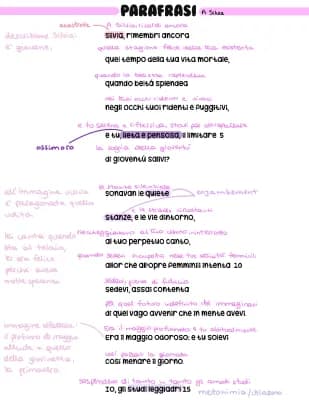 PARAFRASI A Silvia
apostrofe A Silvia, ricordi ancora
descrizione Silvia: Silvia, rimembri ancora
è giovane, quella stagione felice della tua esistenza
quel tempo della tua vita mortale,
quando la bellezza risplendeva
quando beltà splendea
nei tuoi occhi ridenti e
negli occhi tuoi ridenti e fuggitivi,
e tu serena e riflessiva, stavi per oltrepassare
e tu, lieta e pensosa, il limitare 5
ossimoro la soglia della gioventù
di gioventù salivi?
all'immagine visiva le stanze silenziose
è paragonata quella sonavan le quiete enjambement
uditiva. e le strade circostanti
stanze, e le vie dintorno,
la canta quando riecheggiavano al tuo canto ininterrotto
sta al telaio, al tuo perpetuo canto,
era felice quando sedevi occupata nelle tue attività femminili
perché aveva allor che all'opre femminili intenta 10
molte speranze sedevi, piena di fiducia
sedevi, assai contenta
per quel futuro indefinito che immaginavi
di quel vago avvenire che in mente avevi.
immagine olfattiva: Era il maggio profumato e tu abitualmente
il profumo di maggio Era il maggio odoroso: e tu solevi
allude a quello così passavi la giornata
della giovinezza, così menare il giorno.
la primavera sospendendo di tanto in tanto gli amati studi
Io, gli studi leggiadri 15 metonimia/chiasmo